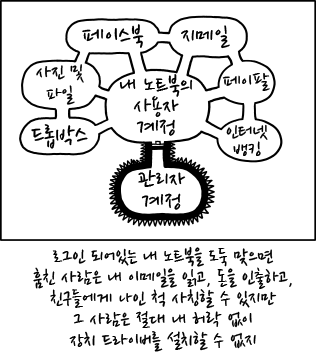 페이스북
지메일
사진 및
파일
내 노트북의
사용자
계정
페이팔
드롭박스
인터넷
뱅킹
관리자
계정
로그인 되어있는 내 노트북을 도둑 맞으면
훔친 사람은 내 이메일을 읽고, 돈을 인출하고,
친구들에게 나인 척 사칭할 수 있지만
그 사람은 절대 내 허락 없이
장치 드라이버를 설치할 수 없지